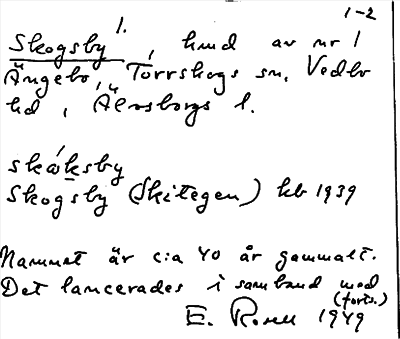 1-2
Skogsby 1., hmd av nr 1
Ängebo, Torrskogs sn, Vedbo
hd, Älvsborgs l.
skåksby
Skogsby (Skitegen) kb 1939
Namnet är c:a 40 år gammalt.
Det lancerades i samband med
(forts.)
E. Rosell 1949